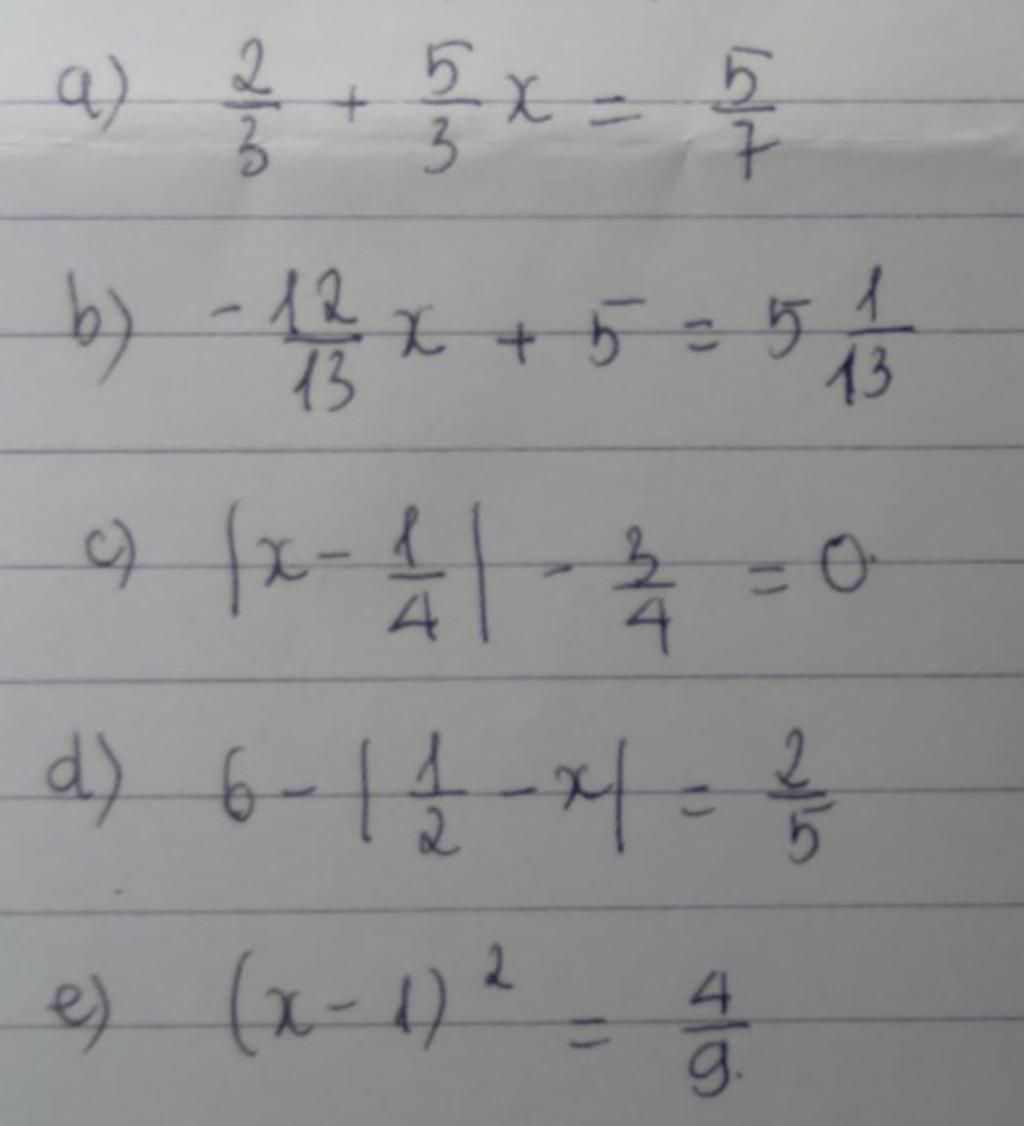 a) 2/3 + 5/3 x = 5/7
b) -12/13 x + 5 = 5 1/13
c) |x - 1/4| - 3/4 = 0
d) 6 - |1/2 - x| = 2/5
e) (x - 1)² = 4/9